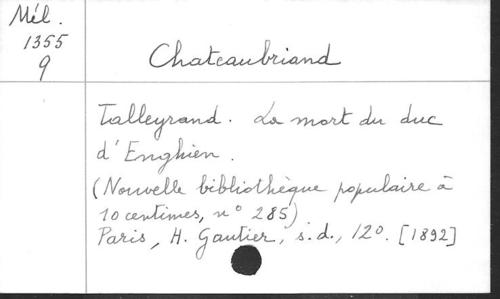 Mél.
1355
9
Chateaubriand
Talleyrand. La mort du duc
d'Enghien.
(Nouvelle bibliothèque populaire à
10 centimes, n° 285)
Paris, H. Gautier, s.d., 12°. [1892]